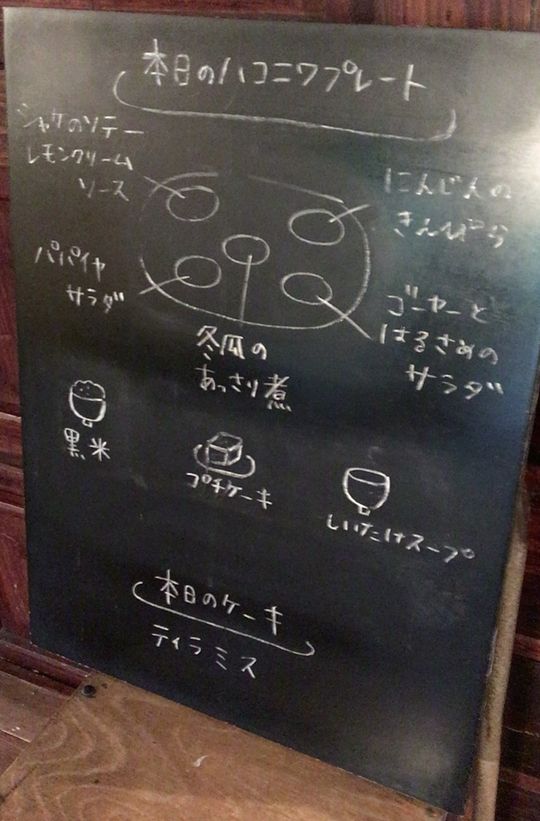 本日のハコニワプレート
シャケのソテー
レモンクリーム
ソース
にんじんの
きんぴら
パパイヤ
サラダ
ゴーヤーと
はるさめの
サラダ
冬瓜の
あっさり煮
黒米
プチケーキ
しいたけスープ
本日のケーキ
ティラミス